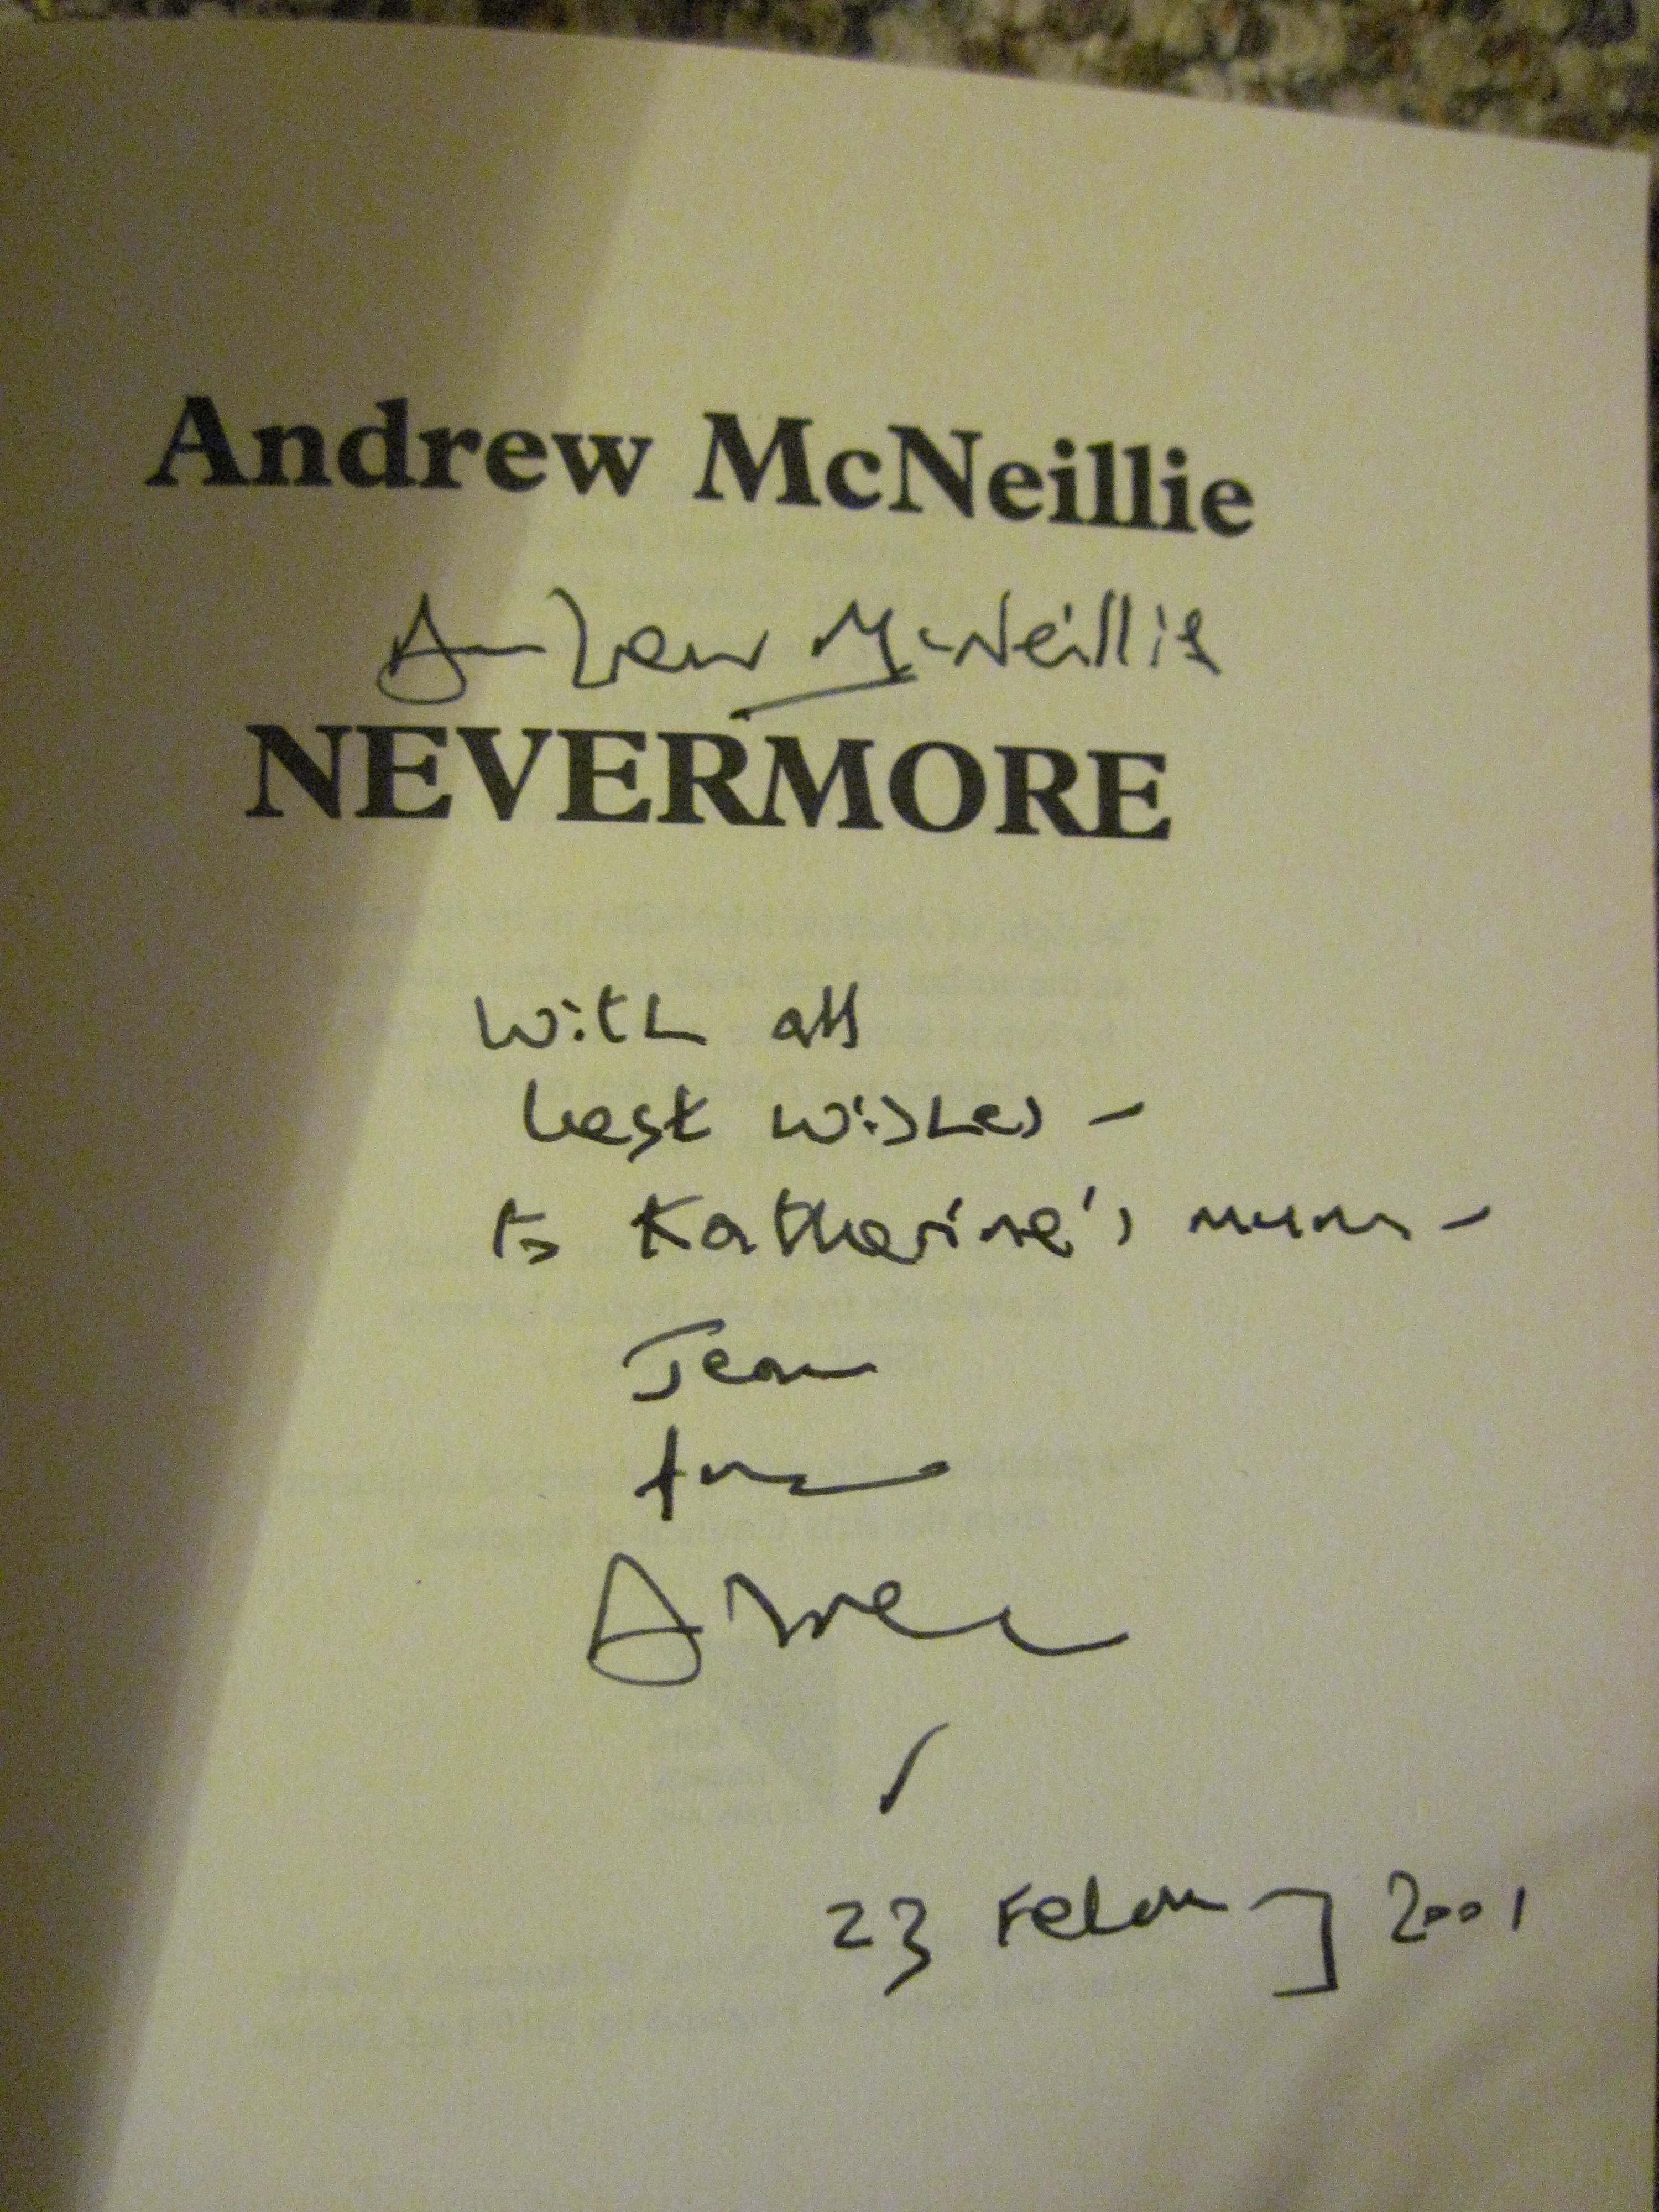 Andrew McNeillie
Andrew McNeillie
NEVERMORE
With all
best wishes –
to Katherine's mum –
Jean
from
Andrew
23 February 2001